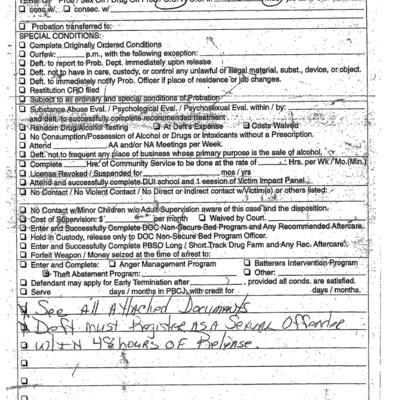 Prob / Sex Off / Drug Off Prob
☐ conc w/ ☐ consec w/
☐ Probation transferred to:
SPECIAL CONDITIONS:
☐ Complete Originally Ordered Conditions
☐ Curfew: p.m., with the following exception:
☐ Deft. to report to Prob. Dept. immediately upon release
☐ Deft. not to have in care, custody, or control any unlawful or illegal material, subst., device, or object.
☐ Deft. to immediately notify Prob. Officer if place of residence or job changes.
☐ Restitution CRO filed
☐ Subject to all ordinary and special conditions of Probation
☐ Substance Abuse Eval. / Psychological Eval. / Psychosexual Eval. within / by:
and deft. to successfully complete recommended treatment
☐ Random Drug/Alcohol Testing ☐ At Deft's Expense ☐ Costs Waived
☐ No Consumption/Possession of Alcohol or Drugs or Intoxicants without a Prescription.
☐ Attend AA and/or NA Meetings per Week.
☐ Deft. not to frequent any place of business whose primary purpose is the sale of alcohol.
☐ Complete Hrs. of Community Service to be done at the rate of Hrs. per Wk / Mo. (Min.)
☐ License Revoked / Suspended for mos / yrs
☐ Attend and successfully complete DUI school and 1 session of Victim Impact Panel.
☐ No Contact / No Violent Contact / No Direct or Indirect contact w/Victim(s) or others listed:
☐ No Contact w/Minor Children w/o Adult Supervision aware of this case and the disposition.
☐ Cost of Supervision: $ per month ☐ Waived by Court.
☐ Enter and Successfully Complete DOC Non-Secure Bed Program and Any Recommended Aftercare.
☐ Hold in Custody, release only to DOC Non-Secure Bed Program Officer.
☐ Enter and Successfully Complete PBSO Long / Short Track Drug Farm and Any Rec. Aftercare.
☐ Forfeit Weapon / Money seized at the time of arrest to:
☐ Enter and Complete: ☐ Anger Management Program ☐ Batterers Intervention Program
☐ Theft Abatement Program: ☐ Other:
☐ Defendant may apply for Early Termination after , provided all conds. are satisfied.
☐ Serve days / months in PBCJ, with credit for days / months.
See all Attached Documents
Deft must Register as a Sexual Offender
W/IN 48 hours of Release.